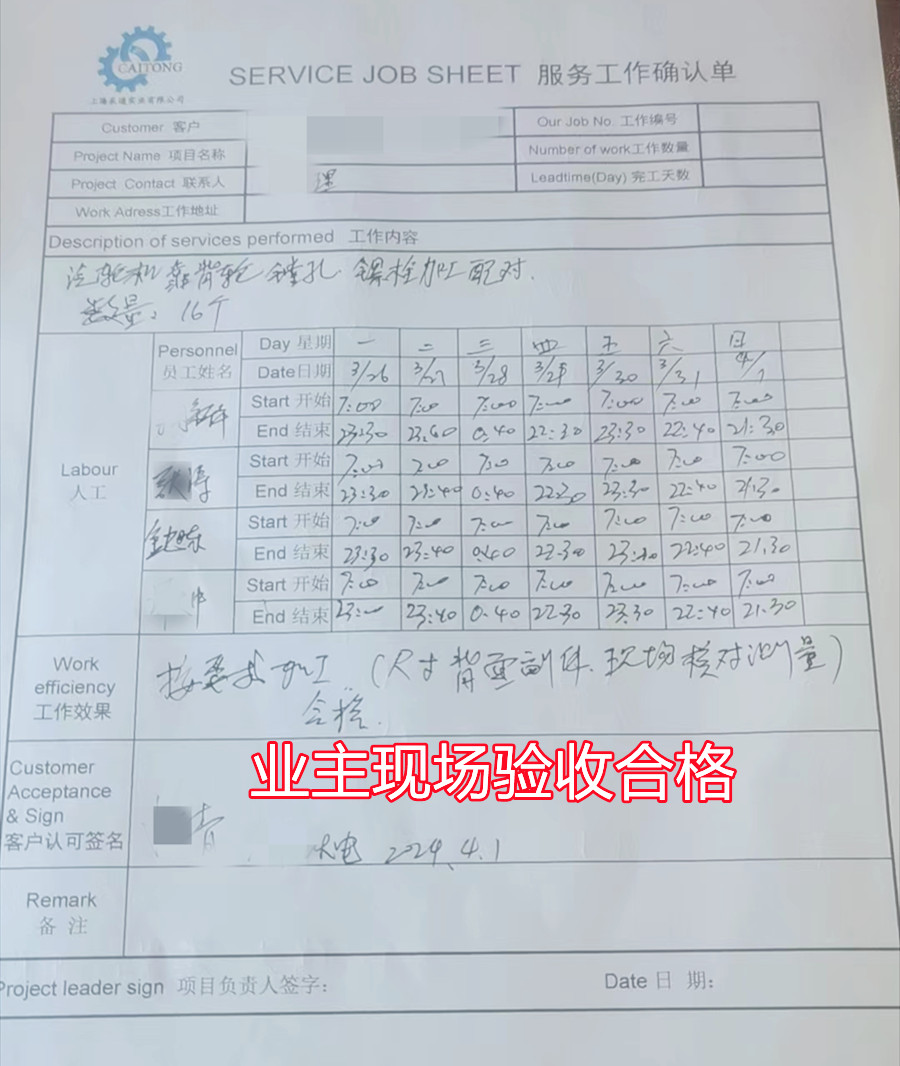 CAITONG
上海采通实业有限公司
SERVICE JOB SHEET 服务工作确认单
Customer 客户
Our Job No. 工作编号
Project Name 项目名称
Number of work工作数量
Project Contact 联系人 理
Leadtime(Day) 完工天数
Work Adress工作地址
Description of services performed 工作内容
汽轮机靠背轮镗孔.螺栓加工配对.
数量: 16个
Labour 人工
Personnel 员工姓名
Day 星期 一 二 三 四 五 六 日
Date日期 3/26 3/27 3/28 3/29 3/30 3/31 4/1
Start 开始 7:00 7:00 7:00 7:00 7:00 7:00 7:00
End 结束 23:30 23:40 0:40 22:30 23:30 22:40 21:30
Start 开始 7:00 7:00 7:00 7:00 7:00 7:00 7:00
End 结束 23:30 23:40 0:40 22:30 23:30 22:40 21:30
Start 开始 7:00 7:00 7:00 7:00 7:00 7:00 7:00
End 结束 23:30 23:40 0:40 22:30 23:30 22:40 21:30
Start 开始 7:00 7:00 7:00 7:00 7:00 7:00 7:00
End 结束 23:00 23:40 0:40 22:30 23:30 22:40 21:30
Work efficiency 工作效果
按要求加工 (尺寸背面副件.现场核对测量)
合格.
业主现场验收合格
Customer Acceptance & Sign 客户认可签名
青
火电 2024.4.1
Remark 备 注
Project leader sign 项目负责人签字:
Date 日 期: